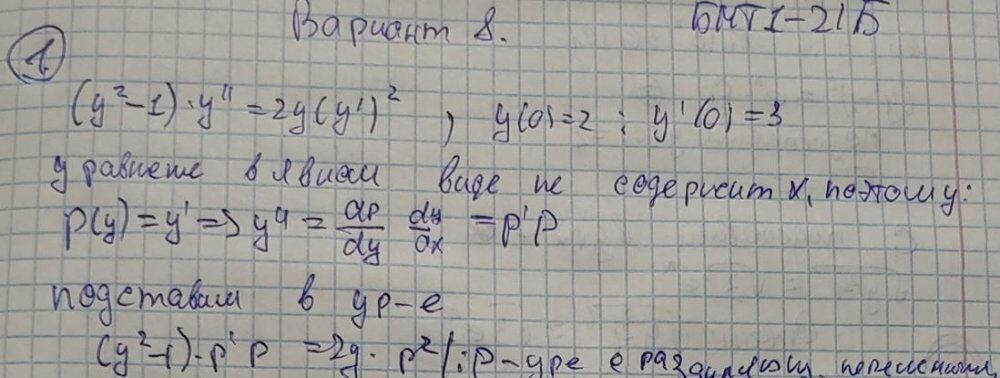 Вариант 8. БМТ1-21Б
1
(y²-1)·y'' = 2y(y')² , y(0)=2 ; y'(0)=3
уравнение в явном виде не содержит x, поэтому:
p(y) = y' => y'' = dp/dy dy/dx = p'p
подставим в ур-е
(y²-1)·p'p = 2y·p² /:p - уре с разделяющ. переменными